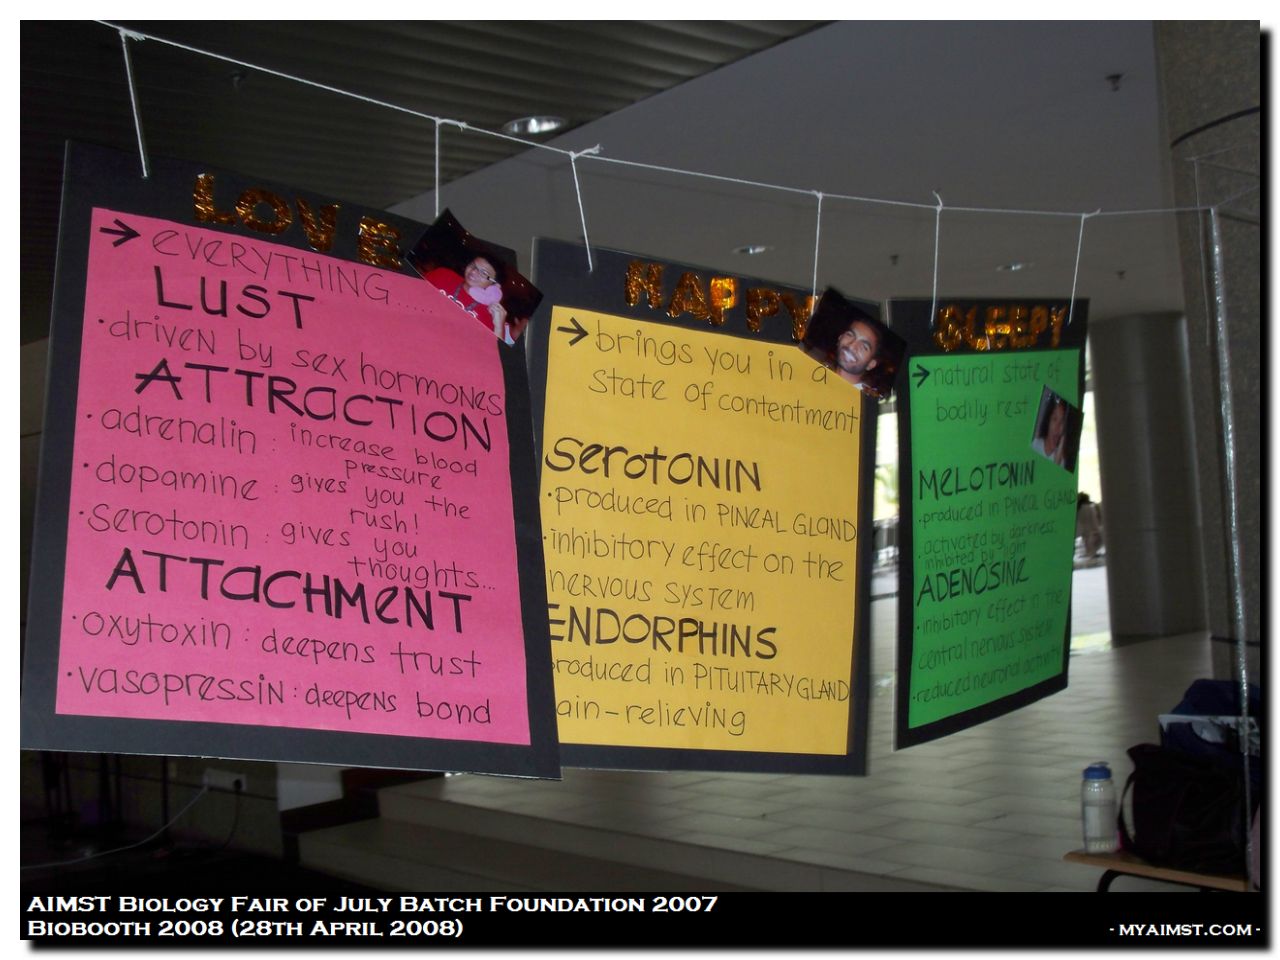 LOVE
→ EVERYTHING.....
LUST
·driven by sex hormones
ATTRACTION
·adrenalin : increase blood
pressure
·dopamine : gives you the
rush!
·serotonin : gives you
thoughts...
ATTACHMENT
·oxytoxin : deepens trust
·vasopressin : deepens bond
HAPPY
→ brings you in a
state of contentment
SEROTONIN
·produced in PINEAL GLAND
·inhibitory effect on the
nervous system
ENDORPHINS
produced in PITUITARY GLAND
ain-relieving
SLEEPY
→ natural state of
bodily rest
MELOTONIN
·produced in PINEAL GLAND
·activated by darkness,
inhibited by light
ADENOSINE
·inhibitory effect in the
central nervous system
·reduced neuronal activity
AIMST Biology Fair of July Batch Foundation 2007
Biobooth 2008 (28th April 2008)
- myaimst.com -